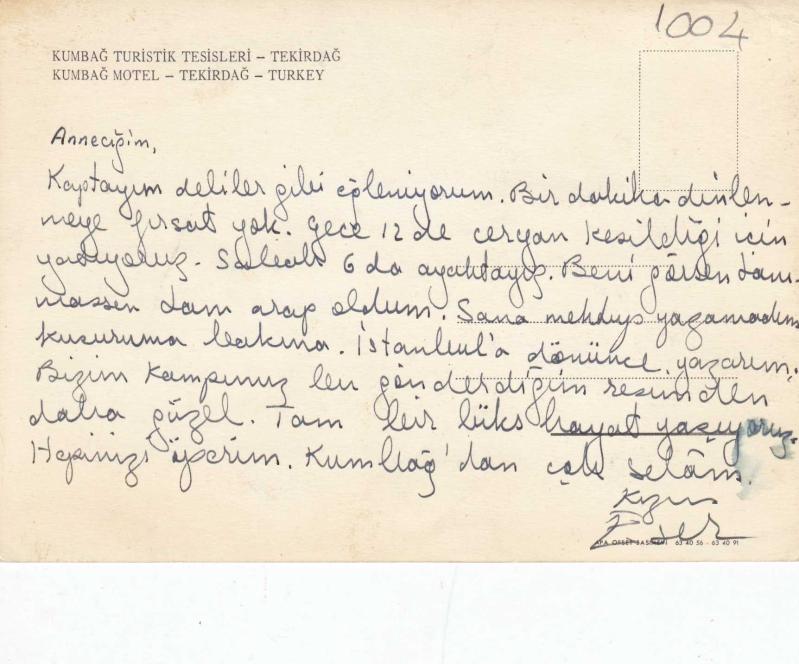 1004
KUMBAĞ TURİSTİK TESİSLERİ – TEKİRDAĞ
KUMBAĞ MOTEL – TEKİRDAĞ – TURKEY
Anneciğim,
Kaptayım deliler gibi eğleniyorum. Bir dakika dinlen-
meye fırsat yok. Gece 12 de ceryan kesildiği için
yatıyoruz. Sabah 6 da ayaktayız. Beni görsen tanı-
massın tam arap oldum. Sana mektup yazamadım
kusuruma bakma. İstanbul'a dönünce yazarım.
Bizim kampımız bu gönderdiğim resimden
daha güzel. Tam bir lüks hayat yaşıyoruz.
Hepinizi öperim. Kumbağ'dan çok selâm.
Kızın
APA OFSET BASIMEVİ 63 40 56 - 63 40 91